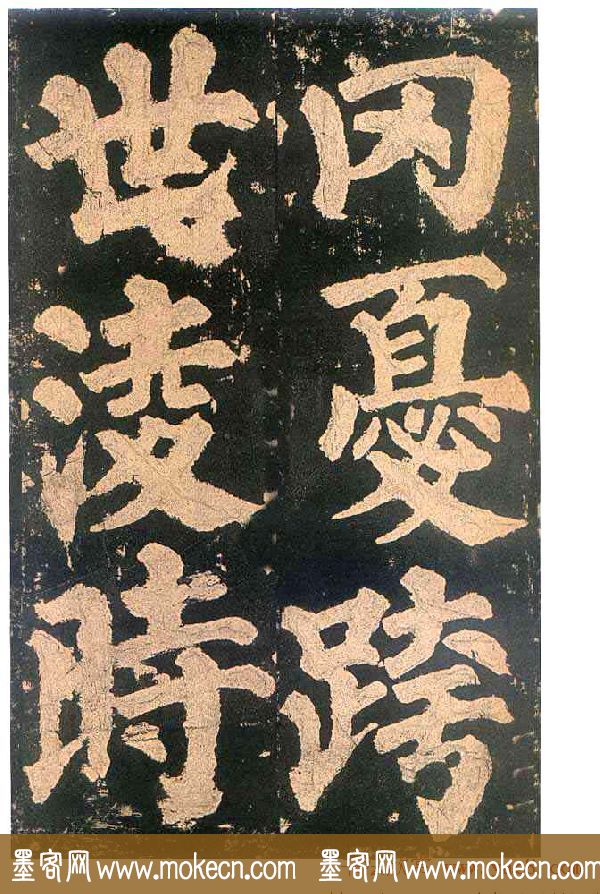 罔憂跨
世淩時
墨客网 www.mokecn.com 墨客网 www.mokecn.com